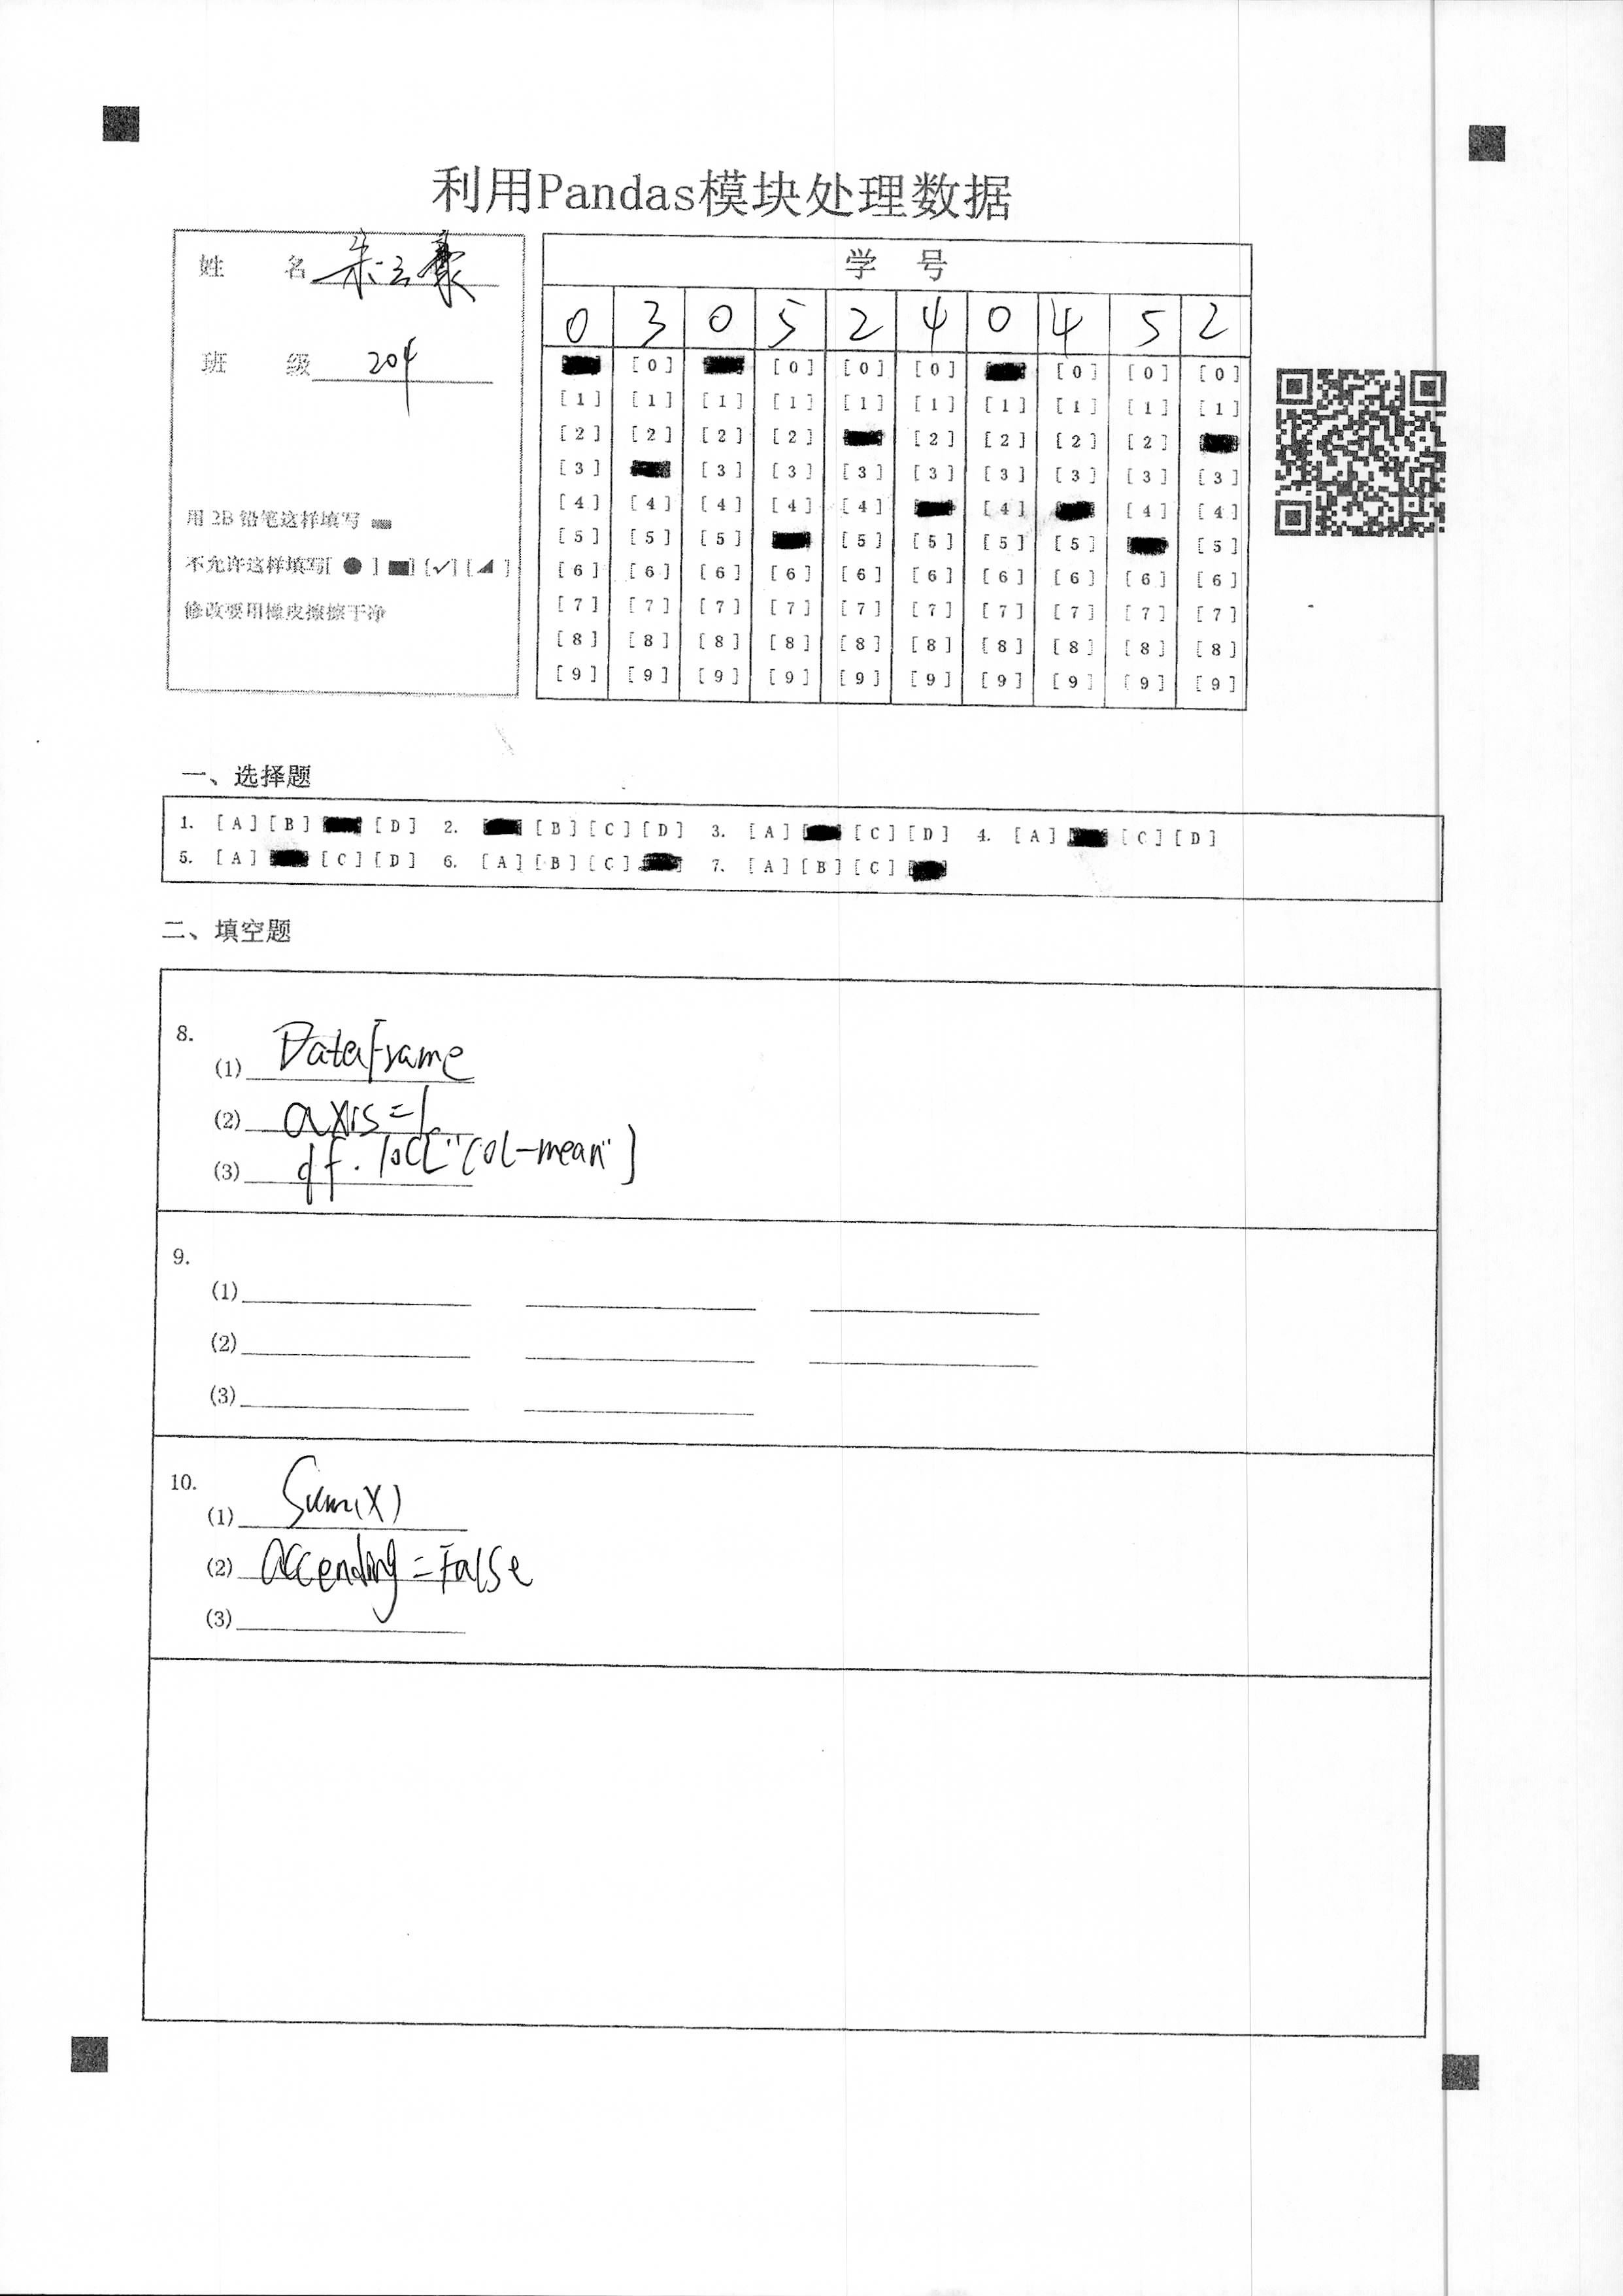 利用Pandas模块处理数据
姓 名 朱云豪
班 级 204
用 2B 铅笔这样填写
不允许这样填写[ ● ] [✓] [◢ ]
修改要用橡皮擦擦干净
学 号
0 3 0 5 2 4 0 4 5 2
[0] [0] [0] [0] [0] [0] [0]
[1] [1] [1] [1] [1] [1] [1] [1] [1] [1]
[2] [2] [2] [2] [2] [2] [2] [2]
[3] [3] [3] [3] [3] [3] [3] [3] [3]
[4] [4] [4] [4] [4] [4] [4] [4]
[5] [5] [5] [5] [5] [5] [5] [5]
[6] [6] [6] [6] [6] [6] [6] [6] [6] [6]
[7] [7] [7] [7] [7] [7] [7] [7] [7] [7]
[8] [8] [8] [8] [8] [8] [8] [8] [8] [8]
[9] [9] [9] [9] [9] [9] [9] [9] [9] [9]
一、选择题
1. [A] [B] [D] 2. [B] [C] [D] 3. [A] [C] [D] 4. [A] [C] [D]
5. [A] [C] [D] 6. [A] [B] [C] 7. [A] [B] [C]
二、填空题
8.
(1) DataFrame
(2) axis=1
(3) df.loc["col-mean"]
9.
(1)
(2)
(3)
10.
(1) Sum(x)
(2) accending=False
(3)